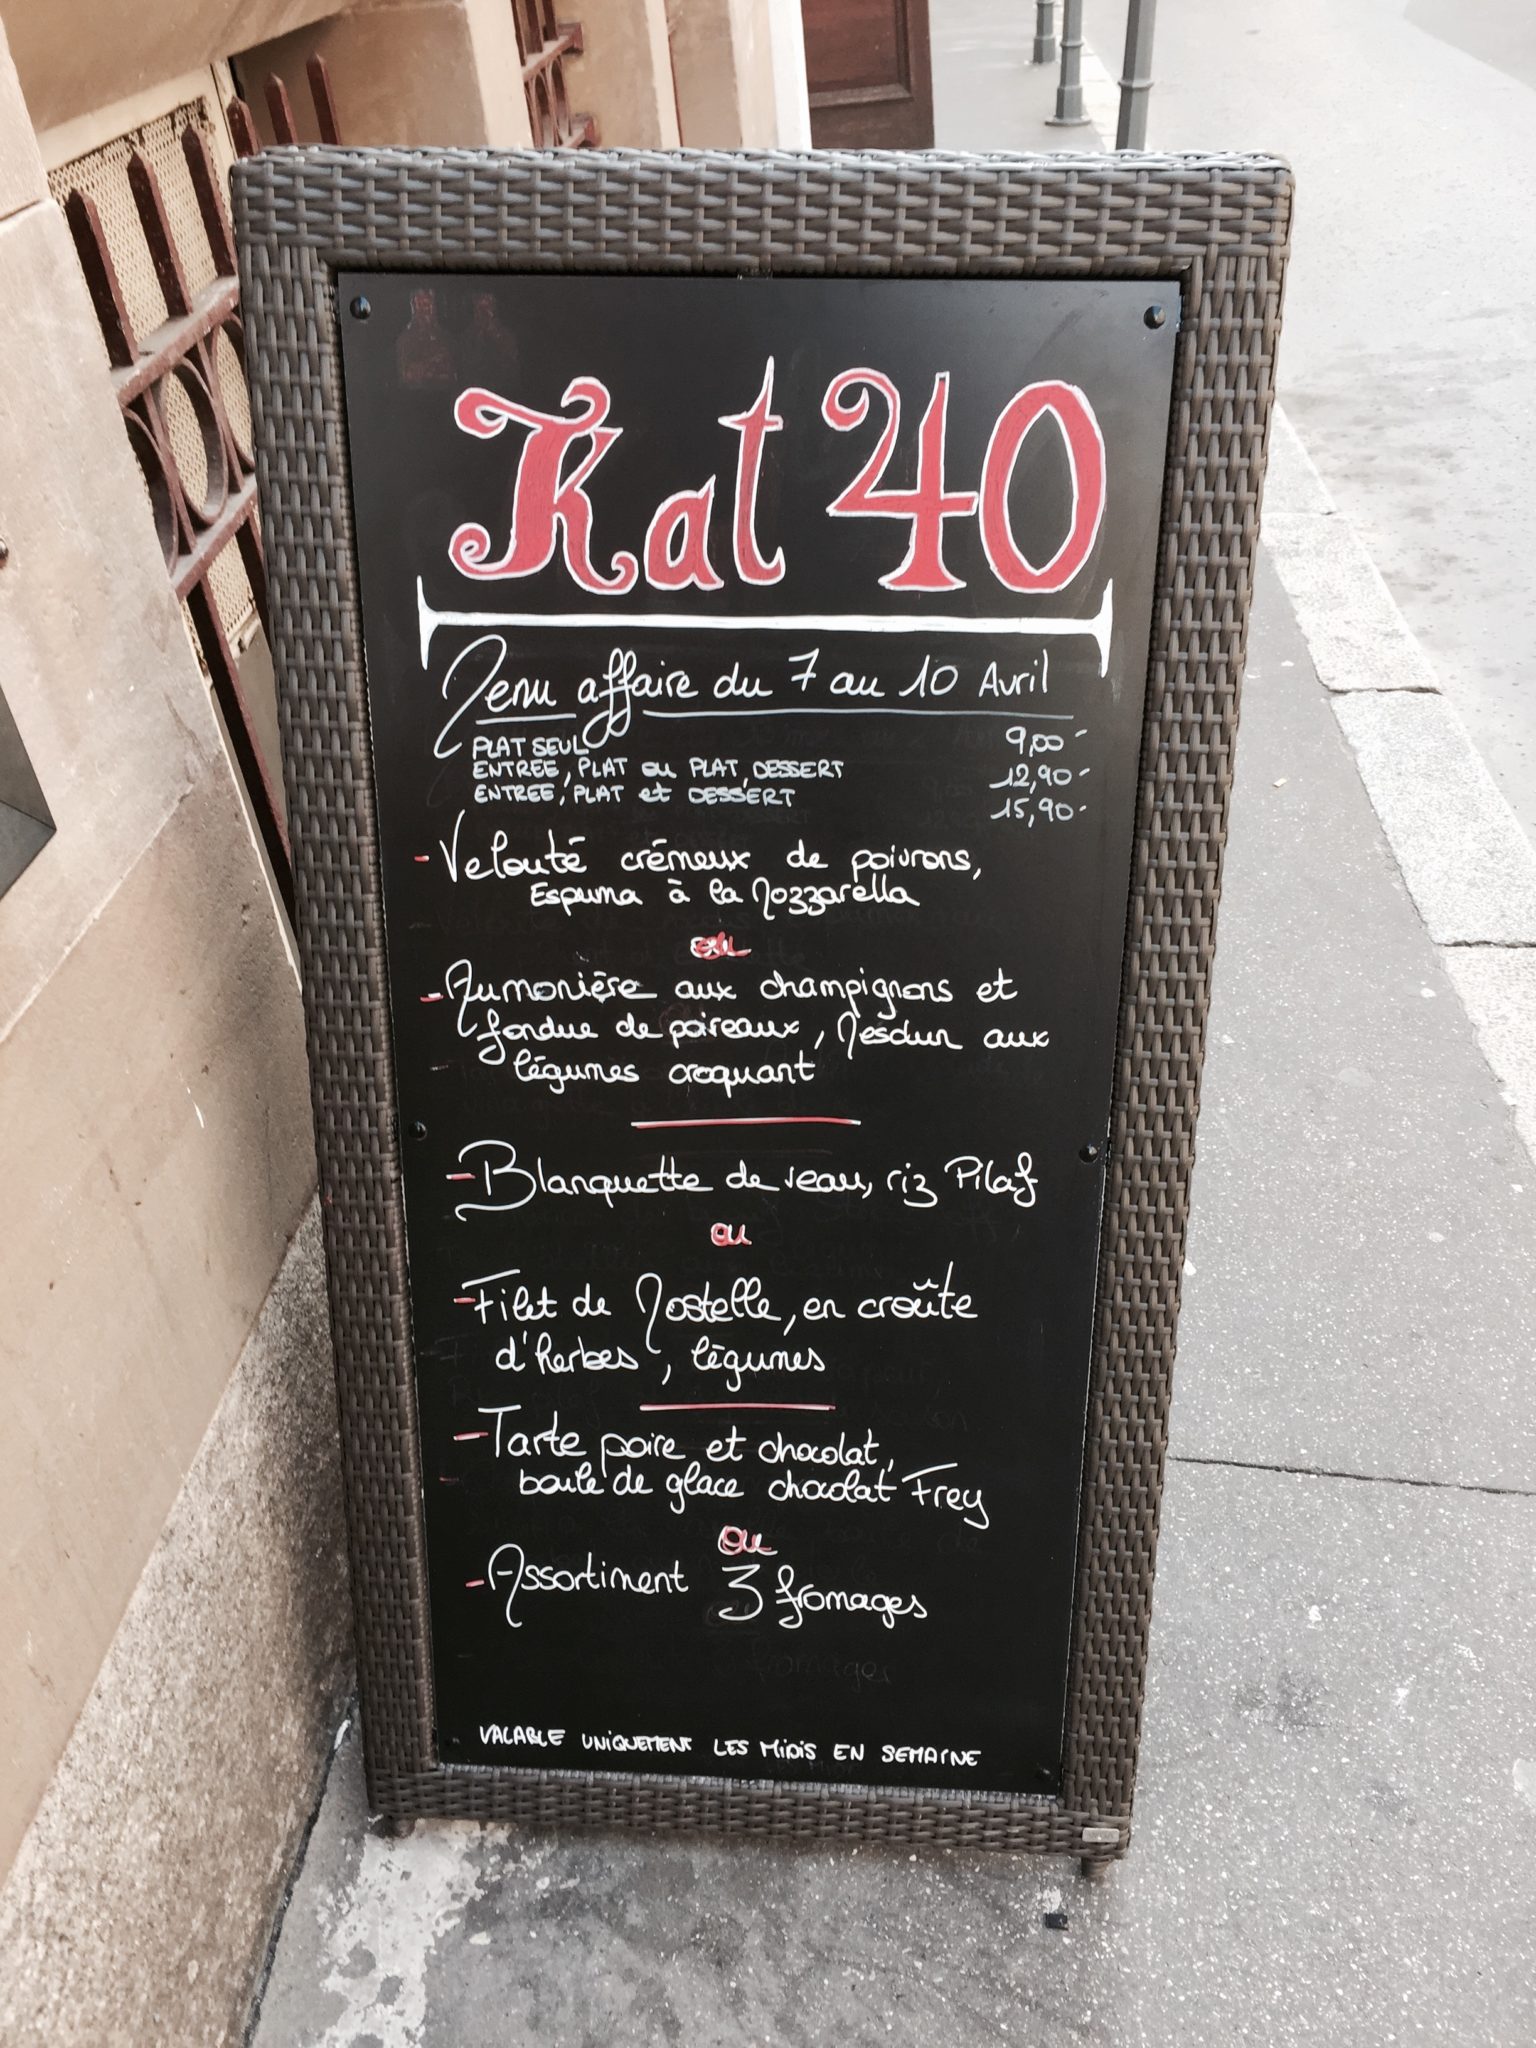 Kat 40
Menu affaire du 7 au 10 Avril
PLAT SEUL 9,00-
ENTREE, PLAT ou PLAT, DESSERT 12,90-
ENTREE, PLAT et DESSERT 15,90-
- Velouté crémeux de poivrons,
Espuma à la Mozzarella
ou
- Aumonière aux champignons et
fondue de poireaux, Mesclun aux
légumes croquant
- Blanquette de veau, riz Pilaf
ou
- Filet de Mostelle, en croûte
d'herbes, légumes
- Tarte poire et chocolat,
boule de glace chocolat Frey
ou
- Assortiment 3 fromages
VALABLE UNIQUEMENT LES MIDIS EN SEMAINE